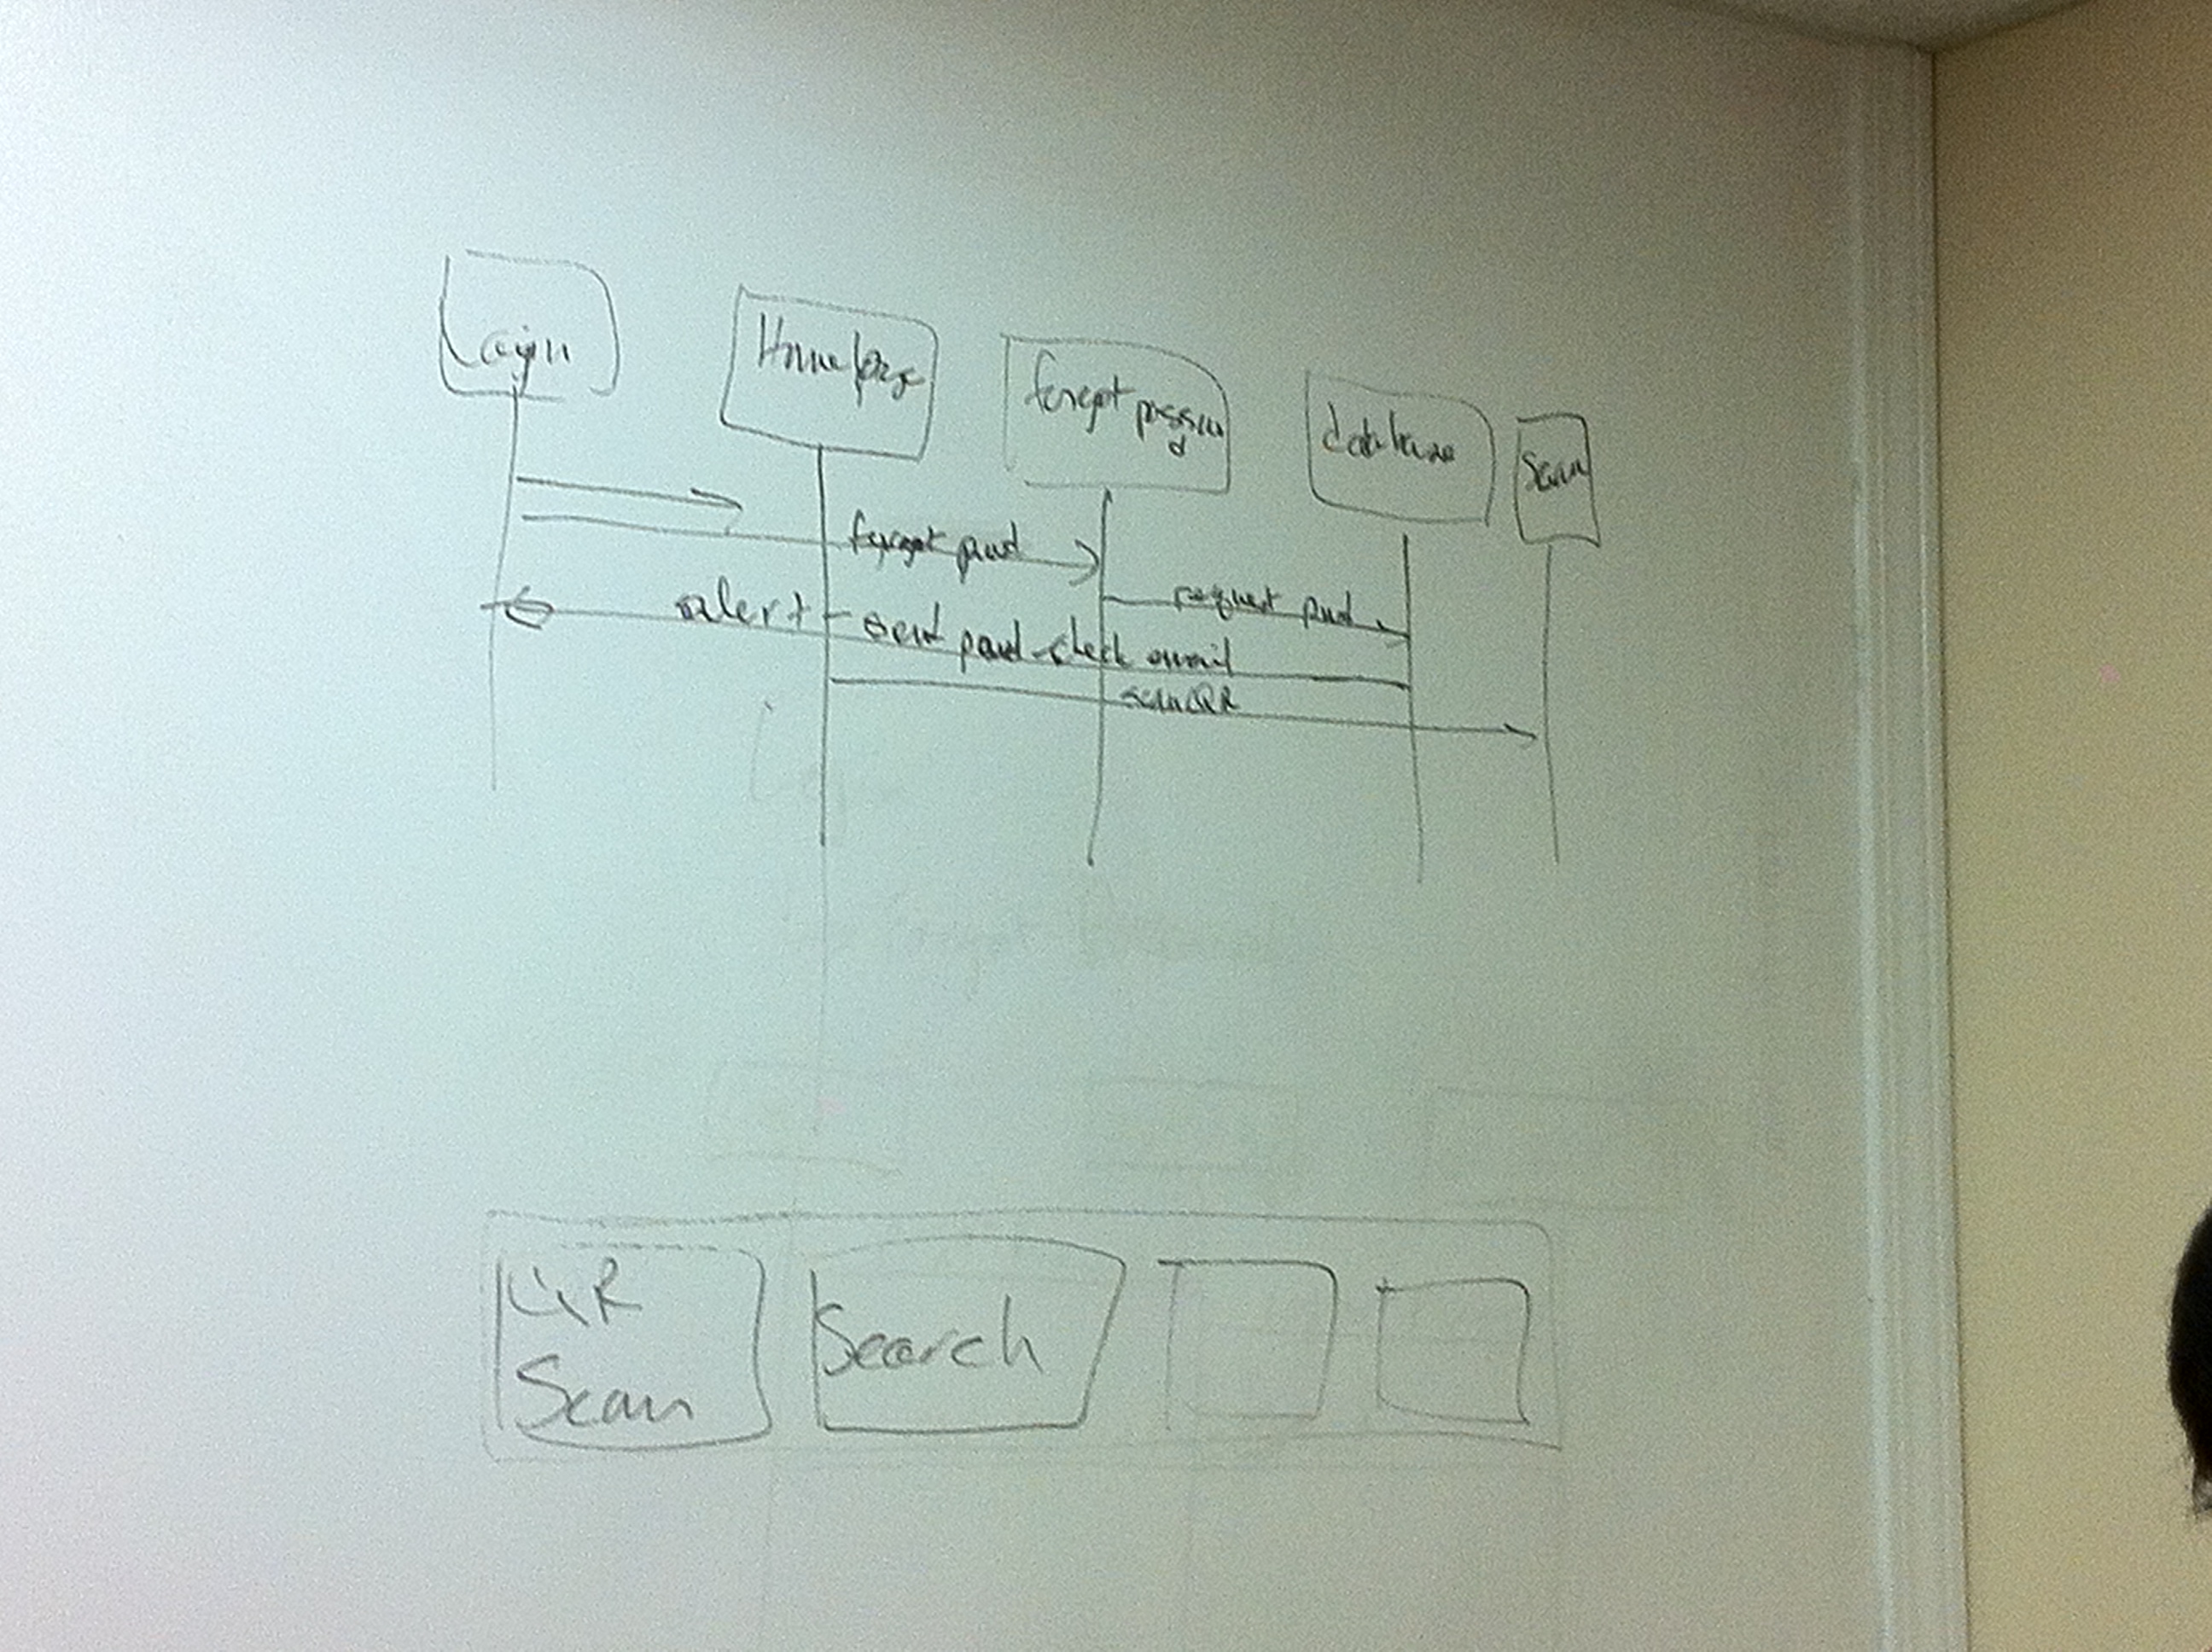 Login
Home Page
forgot passwo
d
database
Scan
forgot pwd
request pwd
alert - send pwd - check email
scan QR
QR
Scan
Search